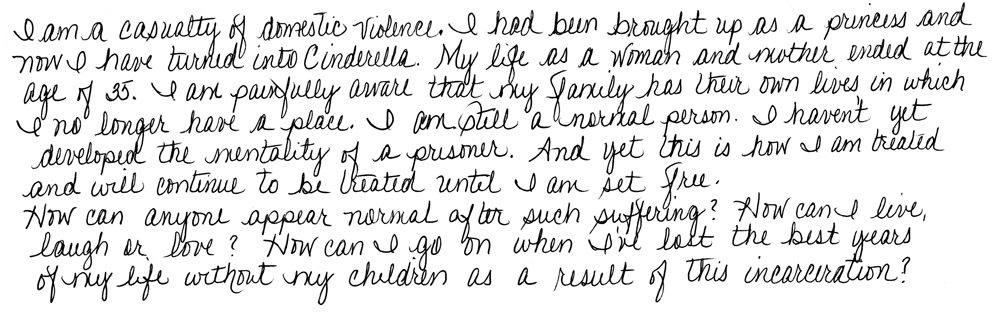 I am a casualty of domestic violence. I had been brought up as a princess and
now I have turned into Cinderella. My life as a woman and mother ended at the
age of 35. I am painfully aware that my family has their own lives in which
I no longer have a place. I am still a normal person. I haven't yet
developed the mentality of a prisoner. And yet this is how I am treated
and will continue to be treated until I am set free.
How can anyone appear normal after such suffering? How can I live,
laugh or love? How can I go on when I've lost the best years
of my life without my children as a result of this incarceration?